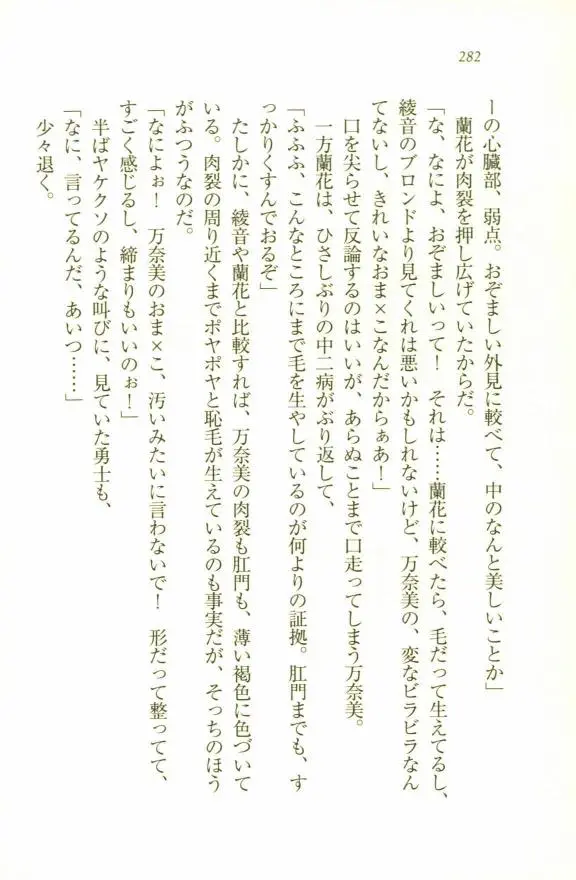 282
ーの心臓部、弱点。おぞましい外見に較べて、中のなんと美しいことか」
蘭花が肉裂を押し広げていたからだ。
「な、なによ、おぞましいって！　それは……蘭花に較べたら、毛だって生えてるし、
綾音のブロンドより見てくれは悪いかもしれないけど、万奈美の、変なビラビラなん
てないし、きれいなおま×こなんだからぁあ！」
口を尖らせて反論するのはいいが、あらぬことまで口走ってしまう万奈美。
一方蘭花は、ひさしぶりの中二病がぶり返して、
「ふふふ、こんなところにまで毛を生やしているのが何よりの証拠。肛門までも、す
っかりくすんでおるぞ」
たしかに、綾音や蘭花と比較すれば、万奈美の肉裂も肛門も、薄い褐色に色づいて
いる。肉裂の周り近くまでポヤポヤと恥毛が生えているのも事実だが、そっちのほう
がふつうなのだ。
「なによぉ！　万奈美のおま×こ、汚いみたいに言わないで！　形だって整ってて、
すごく感じるし、締まりもいいのぉ！」
半ばヤケクソのような叫びに、見ていた勇士も、
「なに、言ってるんだ、あいつ……」
少々退く。